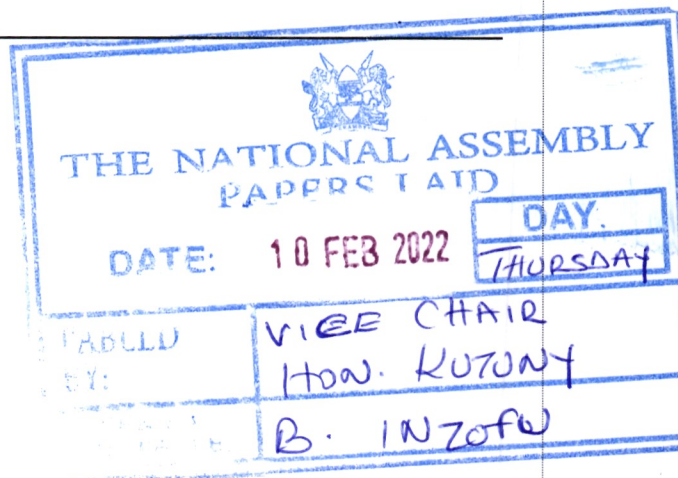 THE NATIONAL ASSEMBLY
PAPERS LAID
DATE: 10 FEB 2022
DAY.
THURSDAY
TABLED
BY:
VICE CHAIR
HON. KUTUNY
B. INZOFU